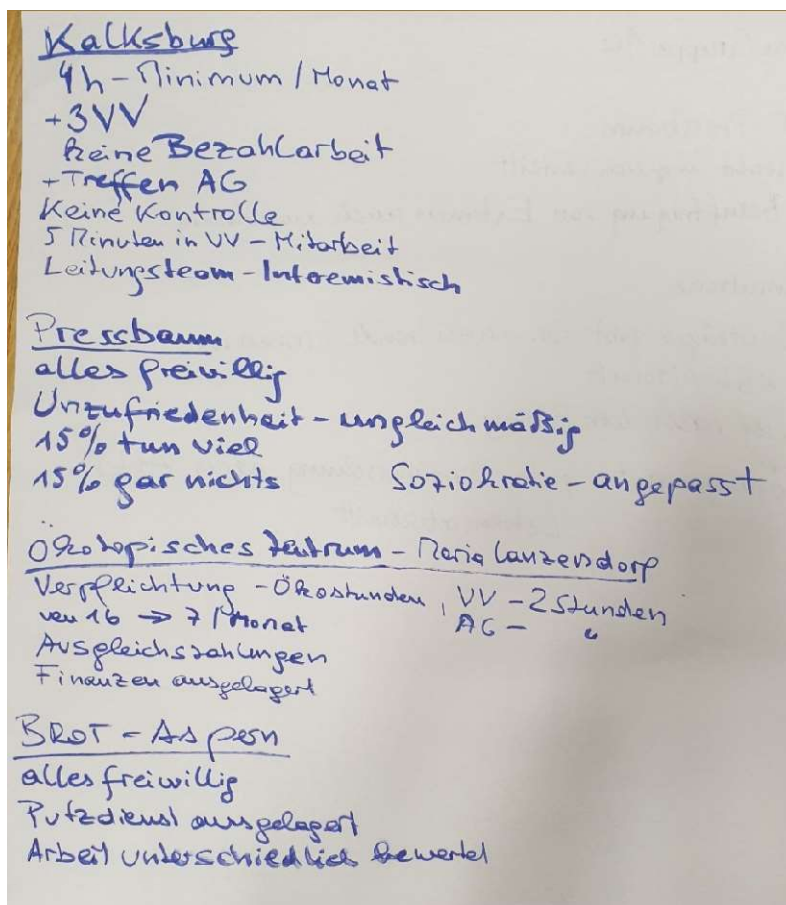 Kalksburg
4h - Minimum / Monat
+ 3 VV
keine Bezahlarbeit
+ Treffen AG
Keine Kontrolle
5 Minuten in VV - Mitarbeit
Leitungsteam - Interemistisch
Pressbaum
alles freiwillig
Unzufriedenheit - ungleichmäßig
15% tun viel
15% gar nichts Soziokratie - angepasst
Ökotopisches Zentrum - Maria Lanzersdorf
Verpflichtung - Ökostunden, VV - 2 Stunden
von 16 → 7 / Monat AG - "
Ausgleichszahlungen
Finanzen ausgelagert
BROT - Aspern
alles freiwillig
Putzdienst ausgelagert
Arbeit unterschiedlich bewertet